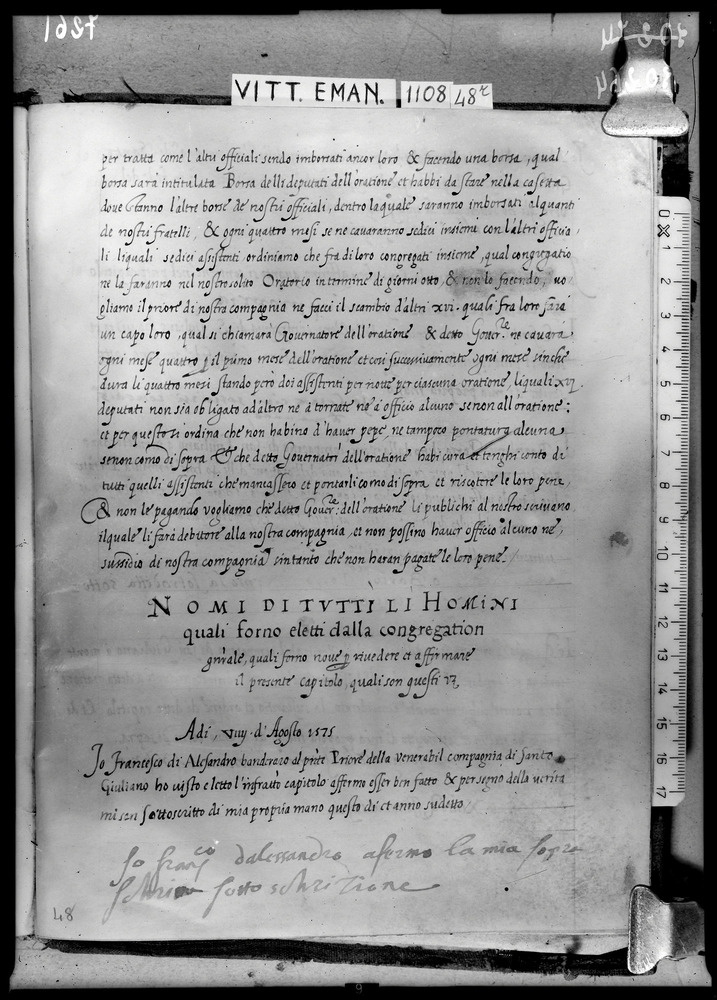 7261
VITT. EMAN. 1108 48r
per tratta come l'altri officiali sendo imborsati ancor loro & facendo una borsa, qual
borsa sarà intitulata Borsa delli deputati dell'oratione et habbi da stare nella cassetta
dove stanno l'altre borse de nostri officiali, dentro la quale saranno imborsati alquanti
de nostri fratelli, & ogni quattro mesi se ne cavaranno sedici insieme con l'altri officia,
li liquali sedici assistenti ordiniamo che fra di loro congregati insieme, qual congregatio
ne la faranno nel nostro solito Oratorio in termine di giorni otto, & non lo facendo, vo
gliamo il priore di nostra compagnia ne facci il scambio d'altri xvi. quali fra loro farà
un capo loro, qual si chiamarà Governatore dell'oratione & detto Gover.re ne cavarà
ogni mese quattro p il primo mese dell'oratione et cosi successivamente ogni mese sinche
dura li quattro mesi stando però doi assistenti per notte per ciascuna oratione, li quali xvj
deputati non sia obligato ad altro ne à tornate ne à officio alcuno se non all'oratione;
et per questo si ordina che non habino d'haver pepe, ne tampoco pontatura alcuna
se non como di sopra Et che detto Governatori dell'oratione habi cura et tenghi conto di
tutti quelli assistenti che mancassero et pontarli como di sopra et riscotere le loro pene
& non le pagando vogliamo che detto Gover.re dell'oratione li publichi al nostro scrivano
il quale li farà debitore alla nostra compagnia, et non possino haver officio alcuno ne,
sussidio di nostra compagnia sin tanto che non haran pagate le loro pene.
NOMI DI TVTTI LI HOMINI
quali forno eletti dalla congregation
gnrale, quali forno nove p rivedere et affirmare
il presente capitolo, quali son questi
Adi, viiij. d'Agosto 1575
Io Francesco di Alesandro banderaro al pnte Priore della venerabil compagnia di Santo
Giuliano ho visto e letto l'infratto capitolo affermo esser ben fatto & per segno della verita
mi son sottoscritto di mia propria mano questo di et anno sudetto
Io franco dalessandro afermo la mia sopra
sotto schrizione
48
0 1 2 3 4 5 6 7 8 9 10 11 12 13 14 15 16 17